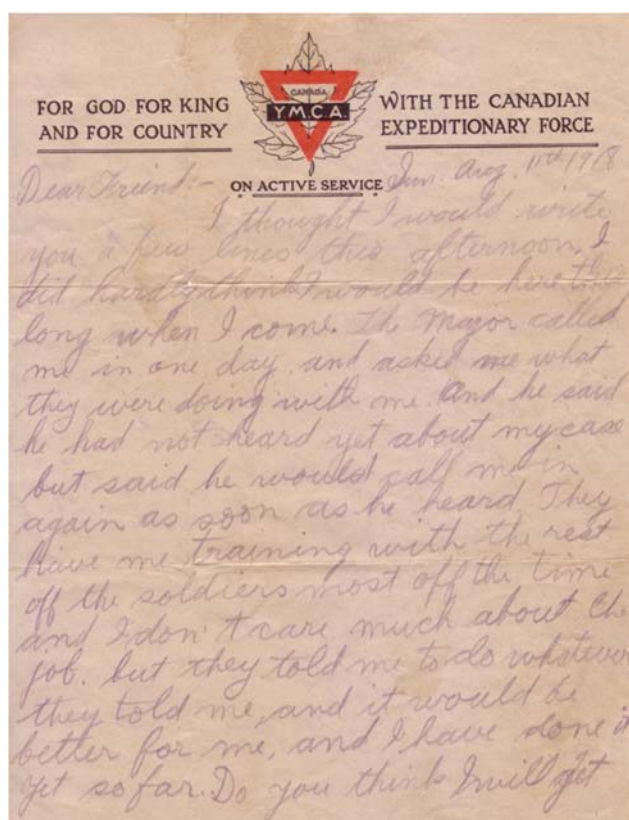 FOR GOD FOR KING
AND FOR COUNTRY
CANADA
Y.M.C.A.
WITH THE CANADIAN
EXPEDITIONARY FORCE
ON ACTIVE SERVICE
Aug. 11th 1918
Dear Friend:-
I thought I would write
you a few lines this afternoon. I
did hardly think I would be here this
long when I come. The Major called
me in one day and asked me what
they were doing with me. And he said
he had not heard yet about my case
but said he would call me in
again as soon as he heard. They
have me training with the rest
off the soldiers most off the time
and I don't care much about the
job. but they told me to do whatever
they told me, and it would be
better for me, and I have done it
yet so far. Do you think I will get